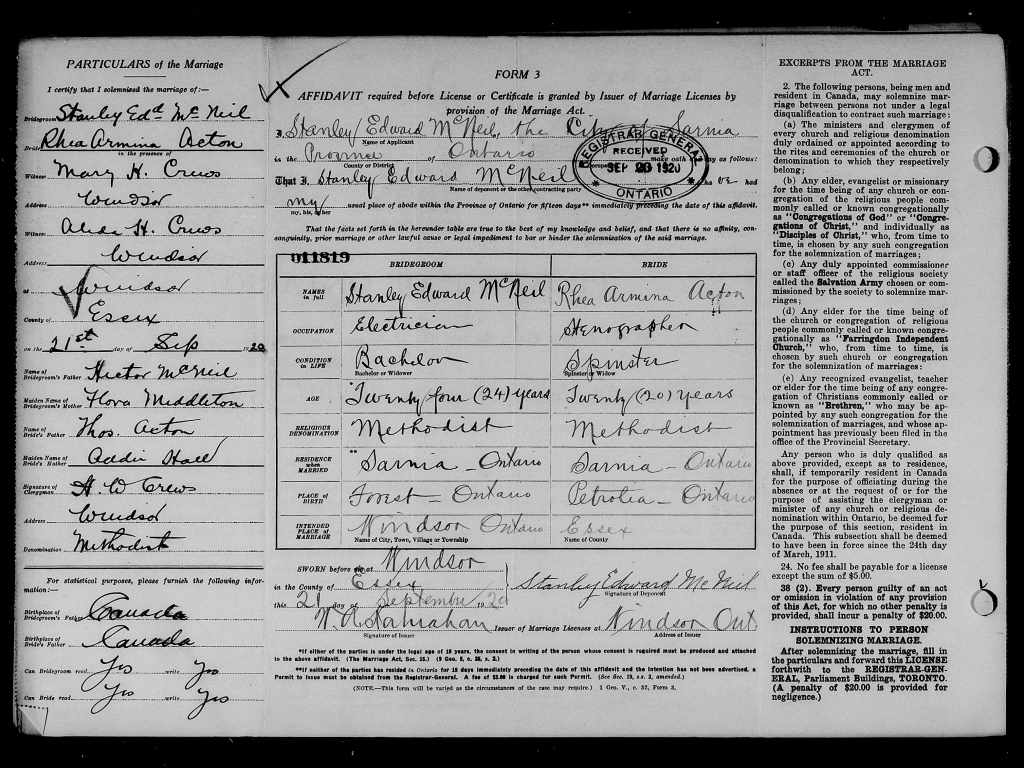 PARTICULARS of the Marriage
I certify that I solemnized the marriage of:—
Bridegroom Stanley Edd McNeil
Bride Rhea Armina Acton
in the presence of
Witness Mary H. Crews
Address Windsor
Witness Aleda H. Crews
Address Windsor
at Windsor
County of Essex
on the 21st day of Sep 1920
Name of Bridegroom's Father Hector McNeil
Maiden Name of Bridegroom's Mother Flora Middleton
Name of Bride's Father Thos. Acton
Maiden Name of Bride's Mother Addie Hall
Signature of Clergyman H. W Crews
Address Windsor
Denomination Methodist
For statistical purposes, please furnish the following information:—
Birthplace of Bridegroom's Father Canada
Birthplace of Bride's Father Canada
Can Bridegroom read Yes write Yes
Can Bride read Yes write Yes
FORM 3
AFFIDAVIT required before License or Certificate is granted by Issuer of Marriage Licenses by
provision of the Marriage Act.
I, Stanley Edward McNeil, the City of Sarnia
Name of Applicant
in the Province of Ontario make oath and say as follows:
County or District
REGISTRAR GENERAL
RECEIVED
SEP 1920
ONTARIO
That I, Stanley Edward McNeil ha ve had
Name of deponent or the other contracting party
my usual place of abode within the Province of Ontario for fifteen days** immediately preceding the date of this affidavit.
my, his, or her
That the facts set forth in the hereunder table are true to the best of my knowledge and belief, and that there is no affinity, con-
sanguinity, prior marriage or other lawful cause or legal impediment to bar or hinder the solemnization of the said marriage.
011819
BRIDEGROOM BRIDE
NAMES in full Stanley Edward McNeil Rhea Armina Acton
OCCUPATION Electrician Stenographer
CONDITION IN LIFE Bachelor Spinster
Bachelor or Widower Spinster or Widow
AGE *Twenty four (24) years Twenty (20) years
RELIGIOUS DENOMINATION Methodist Methodist
RESIDENCE when MARRIED **Sarnia - Ontario Sarnia - Ontario
PLACE OF BIRTH Forest - Ontario Petrolea - Ontario
INTENDED PLACE OF MARRIAGE Windsor Ontario Essex
Name of City, Town, Village or Township Name of County
SWORN before me at Windsor
in the County of Essex
this 21 day of September 1920
Stanley Edward McNeil
Signature of Deponent
Issuer of Marriage Licenses at Windsor Ont
Signature of Issuer Address of Issuer
*If either of the parties is under the legal age of 18 years, the consent in writing of the person whose consent is required must be produced and attached
to the above affidavit. (The Marriage Act, Sec. 15.)
**If neither of the parties has resided in Ontario for 15 days immediately preceding the date of this affidavit and the intention has not been advertised, a
Permit to issue must be obtained from the Registrar-General. A fee of $5.00 is charged for such Permit. (See Sec. 19, s.s. 2, amended.)
(NOTE.—This form will be varied as the circumstances of the case may require.) 1 Geo. V., c. 32, Form 3.
EXCERPTS FROM THE MARRIAGE
ACT.
2. The following persons, being men and
resident in Canada, may solemnize mar-
riage between persons not under a legal
disqualification to contract such marriage:
(a) The ministers and clergymen of
every church and religious denomination
duly ordained or appointed according to
the rites and ceremonies of the church or
denomination to which they respectively
belong;
(b) Any elder, evangelist or missionary
for the time being of any church or con-
gregation of the religious people com-
monly called or known congregationally
as "Congregations of God" or "Congre-
gations of Christ," and individually as
"Disciples of Christ," who, from time to
time, is chosen by any such congregation
for the solemnization of marriages;
(c) Any duly appointed commissioner
or staff officer of the religious society
called the Salvation Army chosen or com-
missioned by the society to solemnize mar-
riages;
(d) Any elder for the time being of
the church or congregation of religious
people commonly called or known congre-
gationally as "Farringdon Independent
Church," who, from time to time, is
chosen by such church or congregation
for the solemnization of marriages:
(e) Any recognized evangelist, teacher
or elder for the time being of any congre-
gation of Christians commonly called or
known as "Brethren," who may be ap-
pointed by any such congregation for the
solemnization of marriages, and whose ap-
pointment has previously been filed in the
office of the Provincial Secretary.
Any person who is duly qualified as
above provided, except as to residence,
shall, if temporarily resident in Canada
for the purpose of officiating during the
absence or at the request of or for the
purpose of assisting the clergyman or
minister of any church or religious de-
nomination within Ontario, be deemed for
the purpose of this section, resident in
Canada. This subsection shall be deemed
to have been in force since the 24th day
of March, 1911.
24. No fee shall be payable for a license
except the sum of $5.00.
38 (2). Every person guilty of an act
or omission in violation of any provision
of this Act, for which no other penalty is
provided, shall incur a penalty of $20.00.
INSTRUCTIONS TO PERSON
SOLEMNIZING MARRIAGE.
After solemnizing the marriage, fill in
the particulars and forward this LICENSE
forthwith to the REGISTRAR-GEN-
ERAL, Parliament Buildings, TORONTO.
(A penalty of $20.00 is provided for
negligence.)